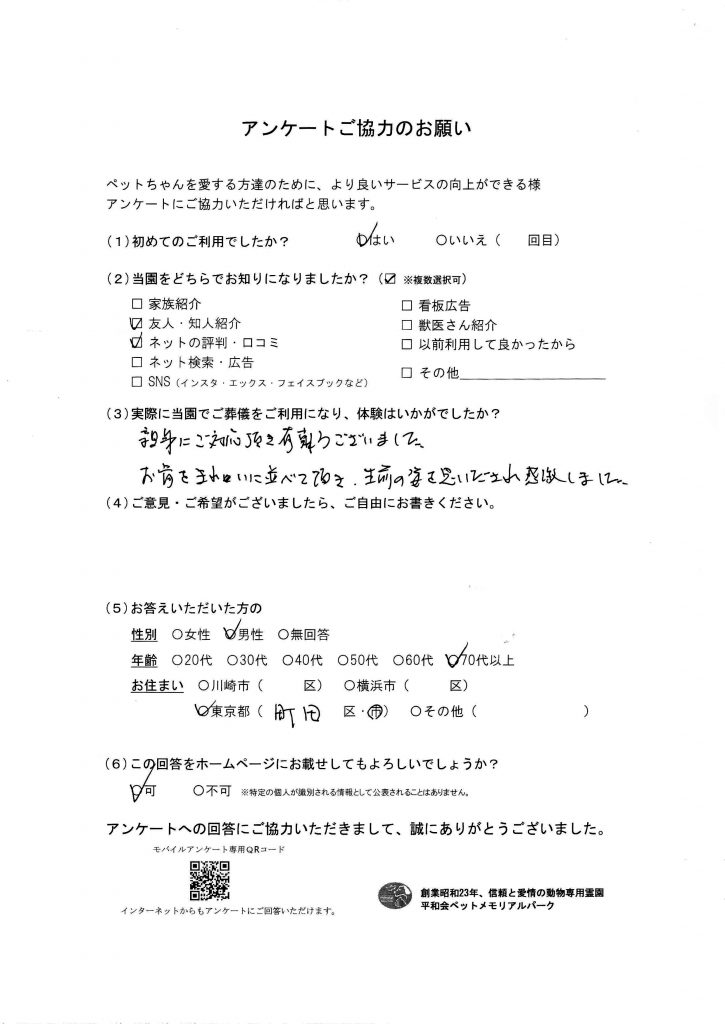 アンケートご協力のお願い
ペットちゃんを愛する方達のために、より良いサービスの向上ができる様
アンケートにご協力いただければと思います。
(1)初めてのご利用でしたか? ○はい ○いいえ( 回目)
(2)当園をどちらでお知りになりましたか?(☑ ※複数選択可)
□ 家族紹介 □ 看板広告
☑ 友人・知人紹介 □ 獣医さん紹介
☑ ネットの評判・口コミ □ 以前利用して良かったから
□ ネット検索・広告
□ その他
□ SNS(インスタ・エックス・フェイスブックなど)
(3)実際に当園でご葬儀をご利用になり、体験はいかがでしたか?
親身にご対応頂き有難うございました。
お骨をきれいに並べて頂き、生前の姿を思いだされ感激しました。
(4)ご意見・ご希望がございましたら、ご自由にお書きください。
(5)お答えいただいた方の
性別 ○女性 ○男性 ○無回答
年齢 ○20代 ○30代 ○40代 ○50代 ○60代 ○70代以上
お住まい ○川崎市( 区) ○横浜市( 区)
○東京都( 町田 区・市) ○その他( )
(6)この回答をホームページにお載せしてもよろしいでしょうか?
○可 ○不可 ※特定の個人が識別される情報として公表されることはありません。
アンケートへの回答にご協力いただきまして、誠にありがとうございました。
モバイルアンケート専用QRコード
インターネットからもアンケートにご回答いただけます。
創業昭和23年、信頼と愛情の動物専用霊園
平和会ペットメモリアルパーク